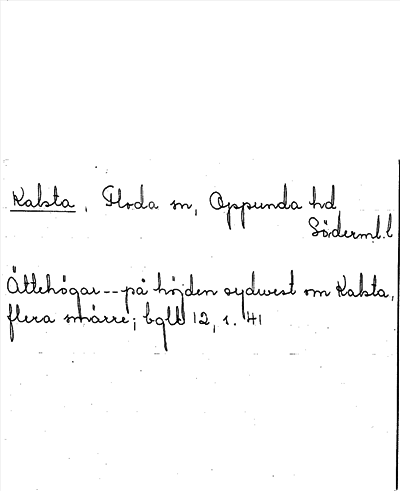 Kalsta, Floda sn, Oppunda hd
Söderml. l
Ättehögar -- på höjden sydwest om Kalsta,
flera smärre; bglb 12, s. 41